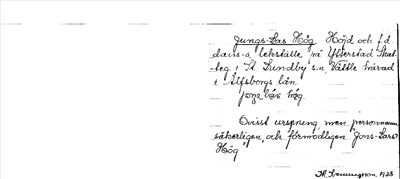 Jungs-Lars Hög. Höjd och f.d.
dans- o. lekställe på Ytterstad Skat-
teg. i St. Lundby s:n, Vättle härad
i Älfsborgs län
Ovisst ursprung, men personnamn
säkerligen, och förmodligen Jons-Lars
Hög"
1928